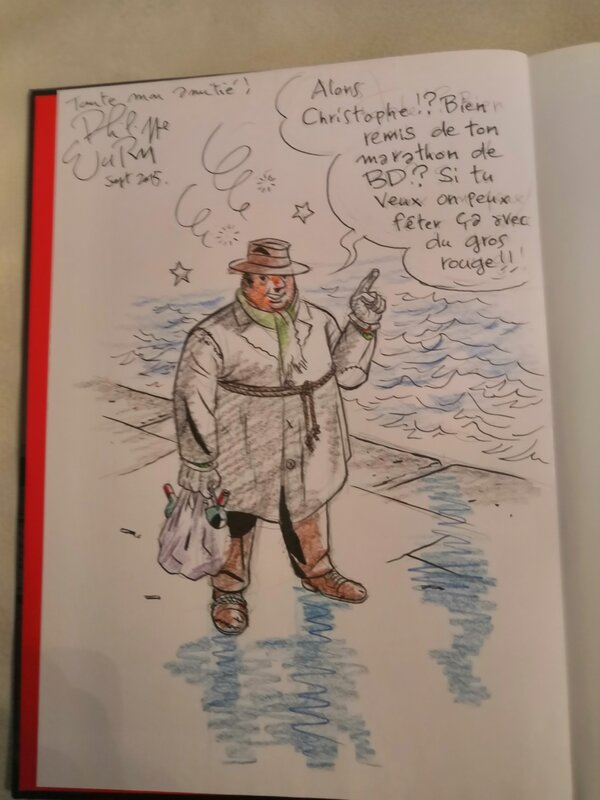 Toute mon amitié !
Philippe
WuRM
sept 2015.
Alors
Christophe !? Bien
remis de ton
marathon de
BD ? Si tu
Veux on peux
fêter ça avec
du gros
rouge !!